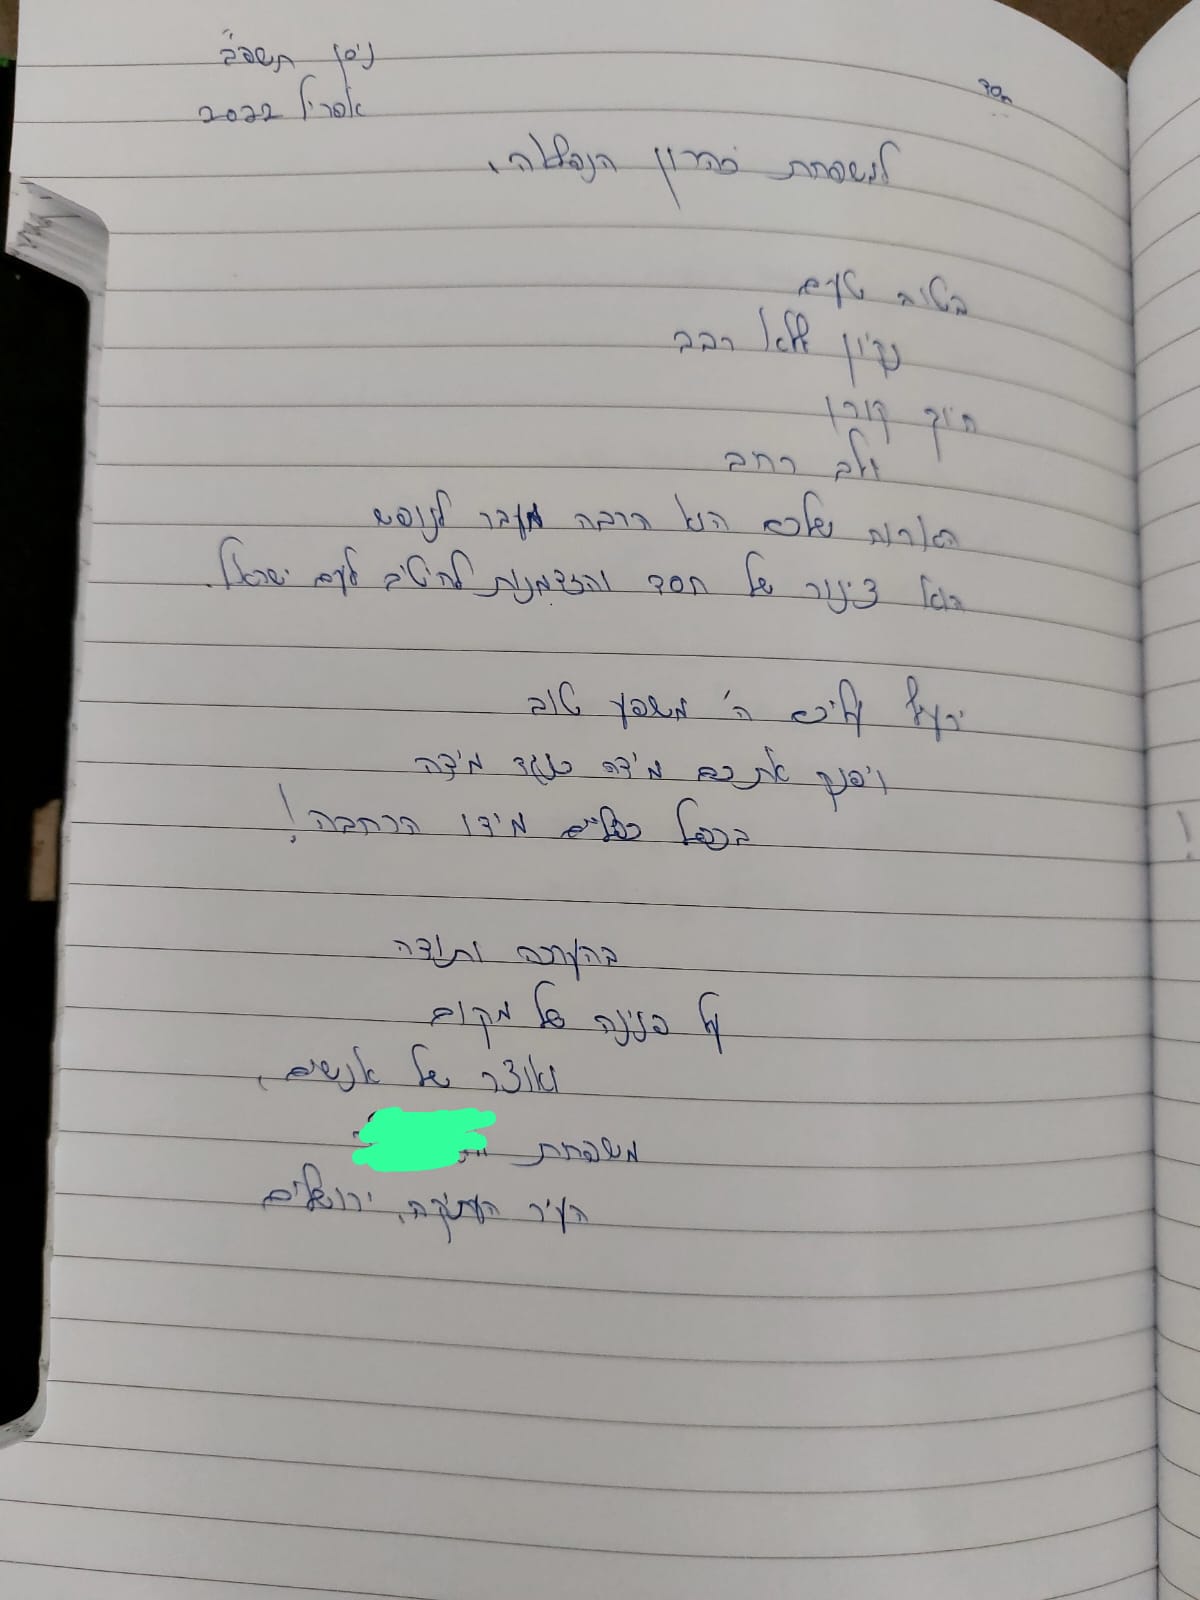 בסד
ניסן תשפ״ב
אפריל 2022
למשפחת כהרון הנפלאה,
בטוב טעם
נקיון ללא רבב
חיוך קורן
ולב רחב
האירוח שלכם הוא הרבה מעבר לנופש
הוא צינור של חסד והזדמנות להיטיב לעם ישראל.
ירעיף עליכם ה׳ משפע טוב
ויפנק אתכם מידה כנגד מידה
בכפל כפליים מידו הרחבה!
בהערכה ותודה
על פנינה של מקום
ואוצר של אנשים,
משפחת
העיר העתיקה, ירושלים